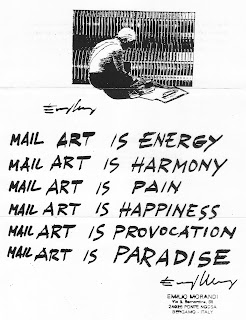 MAIL ART IS ENERGY
MAIL ART IS HARMONY
MAIL ART IS PAIN
MAIL ART IS HAPPINESS
MAIL ART IS PROVOCATION
MAIL ART IS PARADISE
EMILIO MORANDI
24028 PONTE NOSSA
BERGAMO - ITALY